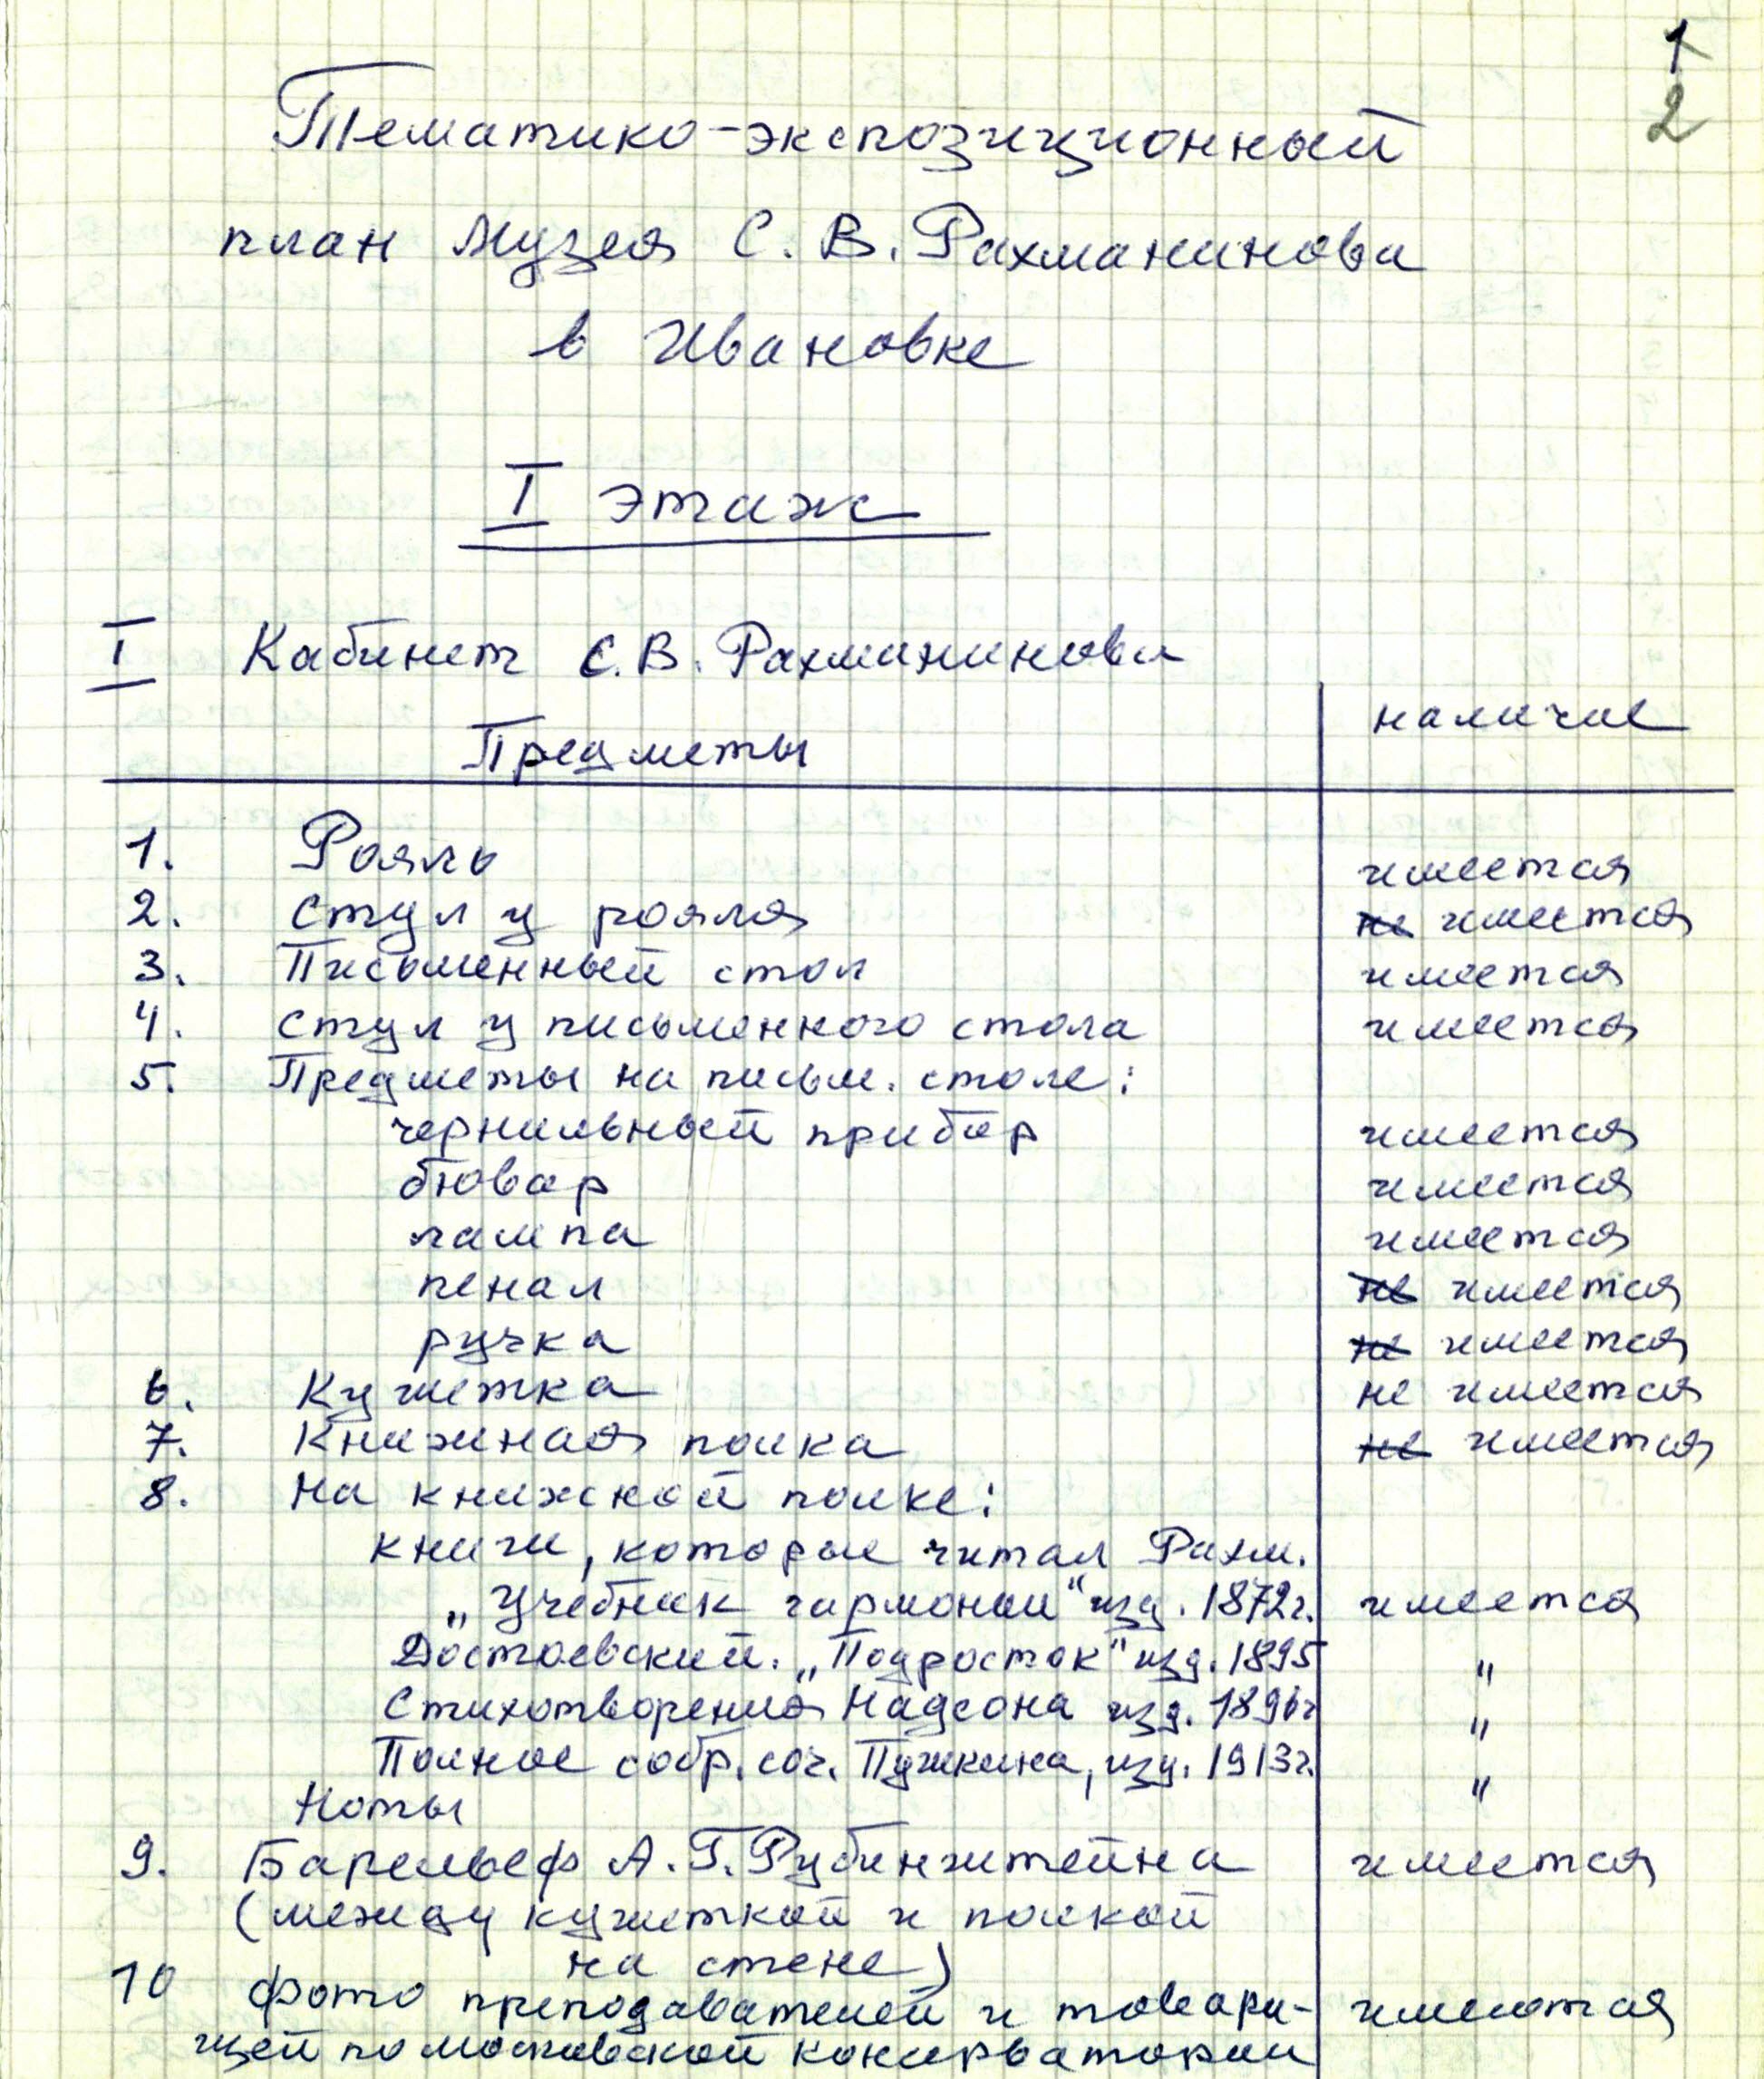 1
2
Тематико-экспозиционный
план Музея С. В. Рахманинова
в Ивановке
I этаж
I Кабинет С.В. Рахманинова
Предметы наличие
1. Рояль имеется
2. Стул у рояля не имеется
3. Письменный стол имеется
4. Стул у письменного стола имеется
5. Предметы на письм. столе:
чернильный прибор имеется
бювар имеется
лампа имеется
пенал не имеется
ручка не имеется
6. Кушетка не имеется
7. Книжная полка не имеется
8. На книжной полке:
книги, которые читал Рахм.
„Учебник гармонии“ изд. 1872г. имеется
Достоевский. „Подросток“ изд. 1895 "
Стихотворения Надсона изд. 1896г "
Полное собр. соч. Пушкина, изд. 1913г. "
Ноты
9. Барельеф А. Г. Рубинштейна имеется
(между кушеткой и полкой
на стене)
10 Фото преподавателей и товари- имеются
щей по московской консерватории